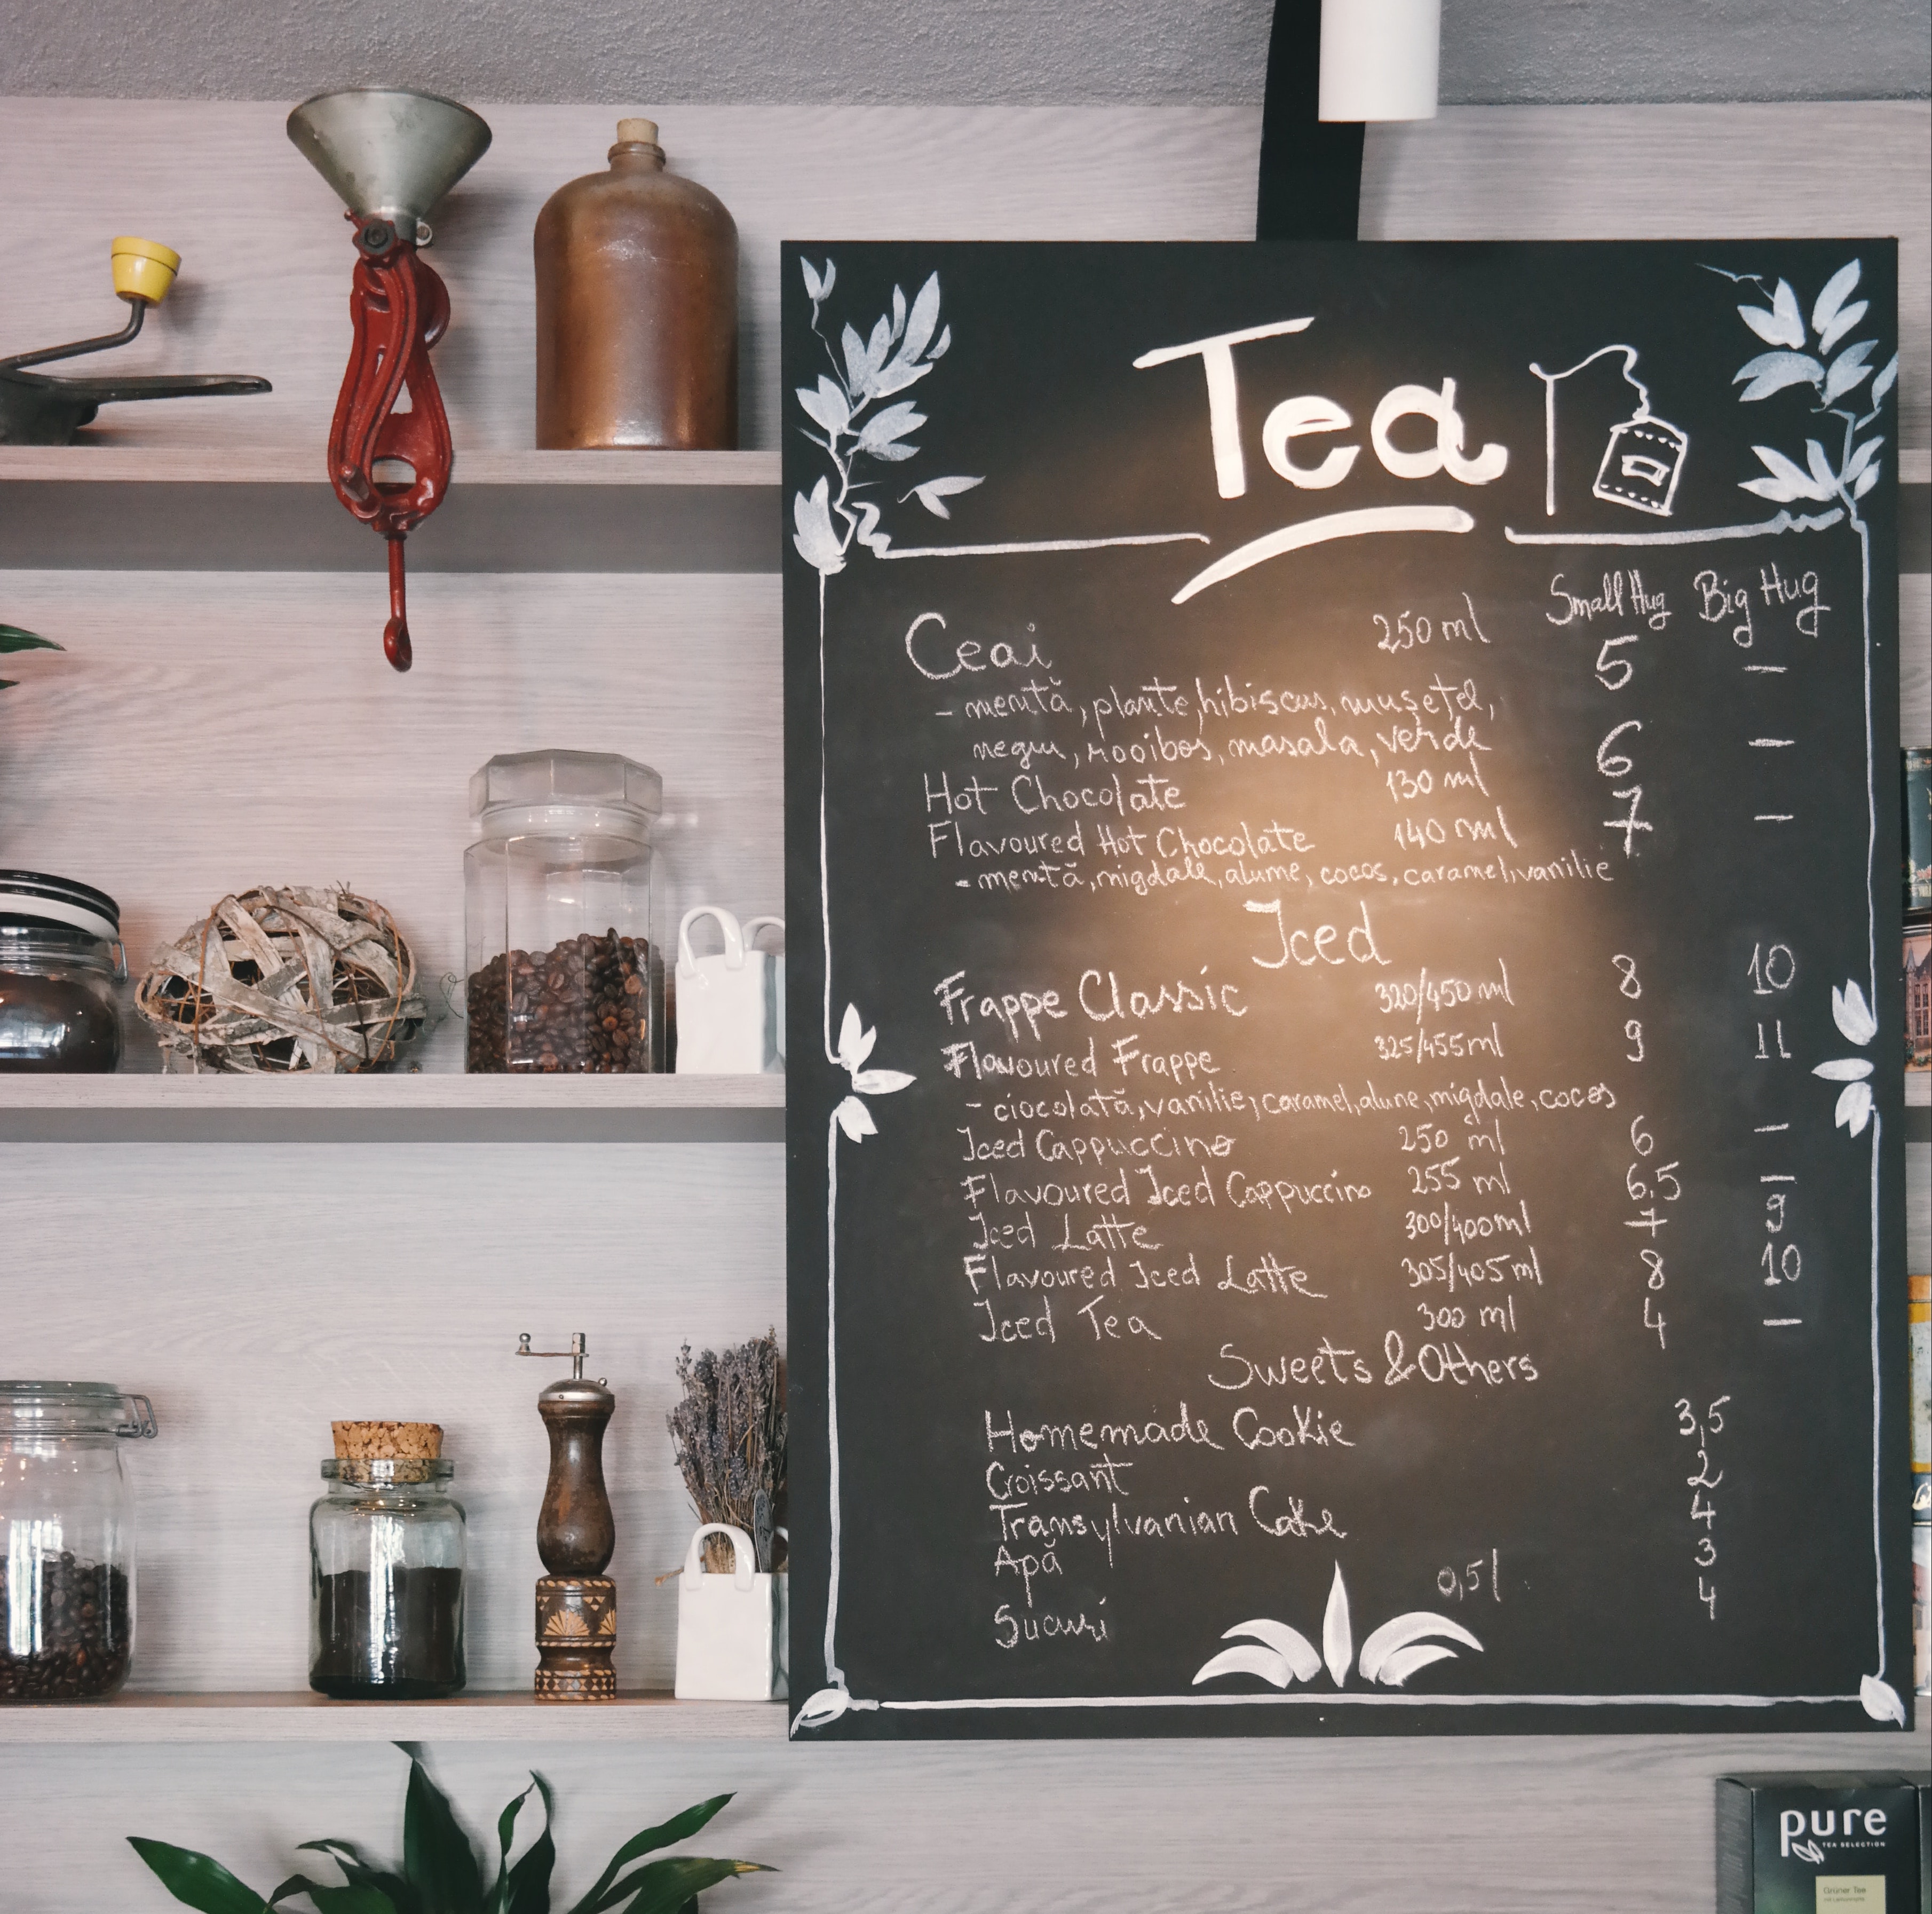 Tea
Small Hug Big Hug
Ceai 250 ml 5 –
- mentă, plante, hibiscus, mușețel,
negru, rooibos, masala, verde
Hot Chocolate 130 ml 6 –
Flavoured Hot Chocolate 140 ml 7 –
- mentă, migdale, alume, cocos, caramel, vanilie
Iced
Frappe Classic 320/450 ml 8 10
Flavoured Frappe 325/455 ml 9 11
- ciocolată, vanilie, caramel, alune, migdale, cocos
Iced Cappuccino 250 ml 6 –
Flavoured Iced Cappuccino 255 ml 6.5 –
Iced Latte 300/400 ml 7 9
Flavoured Iced Latte 305/405 ml 8 10
Iced Tea 300 ml 4 –
Sweets & Others
Homemade Cookie 3,5
Croissant 2
Transylvanian Cake 4
Apă 0,5 l 3
Sucuri 4
pure
TEA SELECTION
Grüner Tee